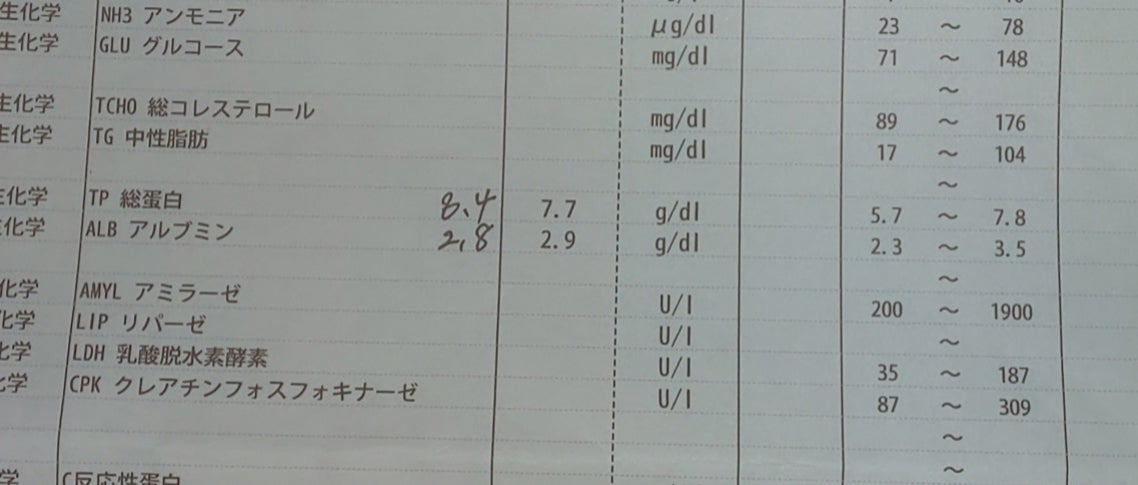 生化学 NH3 アンモニア μg/dl 23 ～ 78
生化学 GLU グルコース mg/dl 71 ～ 148
～
生化学 TCHO 総コレステロール mg/dl 89 ～ 176
生化学 TG 中性脂肪 mg/dl 17 ～ 104
～
生化学 TP 総蛋白 8.4 7.7 g/dl 5.7 ～ 7.8
生化学 ALB アルブミン 2.8 2.9 g/dl 2.3 ～ 3.5
～
化学 AMYL アミラーゼ U/l 200 ～ 1900
化学 LIP リパーゼ U/l ～
化学 LDH 乳酸脱水素酵素 U/l 35 ～ 187
化学 CPK クレアチンフォスフォキナーゼ U/l 87 ～ 309
～
学 C反応性蛋白 ～